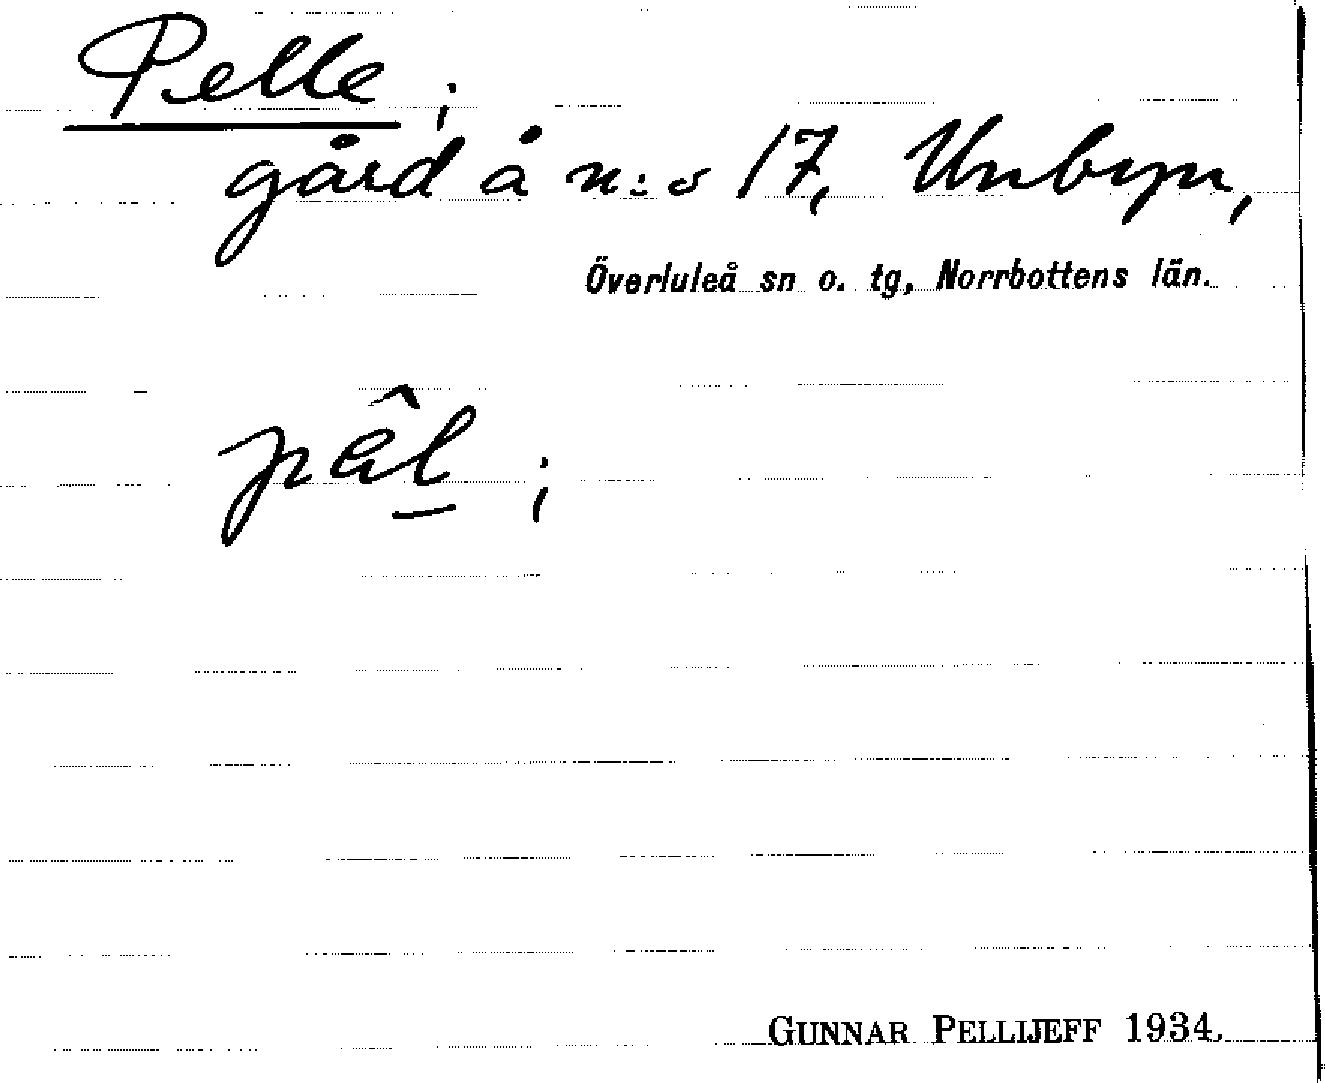 Pelle;
gård å n:o 17, Unbyn,
Överluleå sn o. tg, Norrbottens län.
pâl̲;
GUNNAR PELLIJEFF 1934.